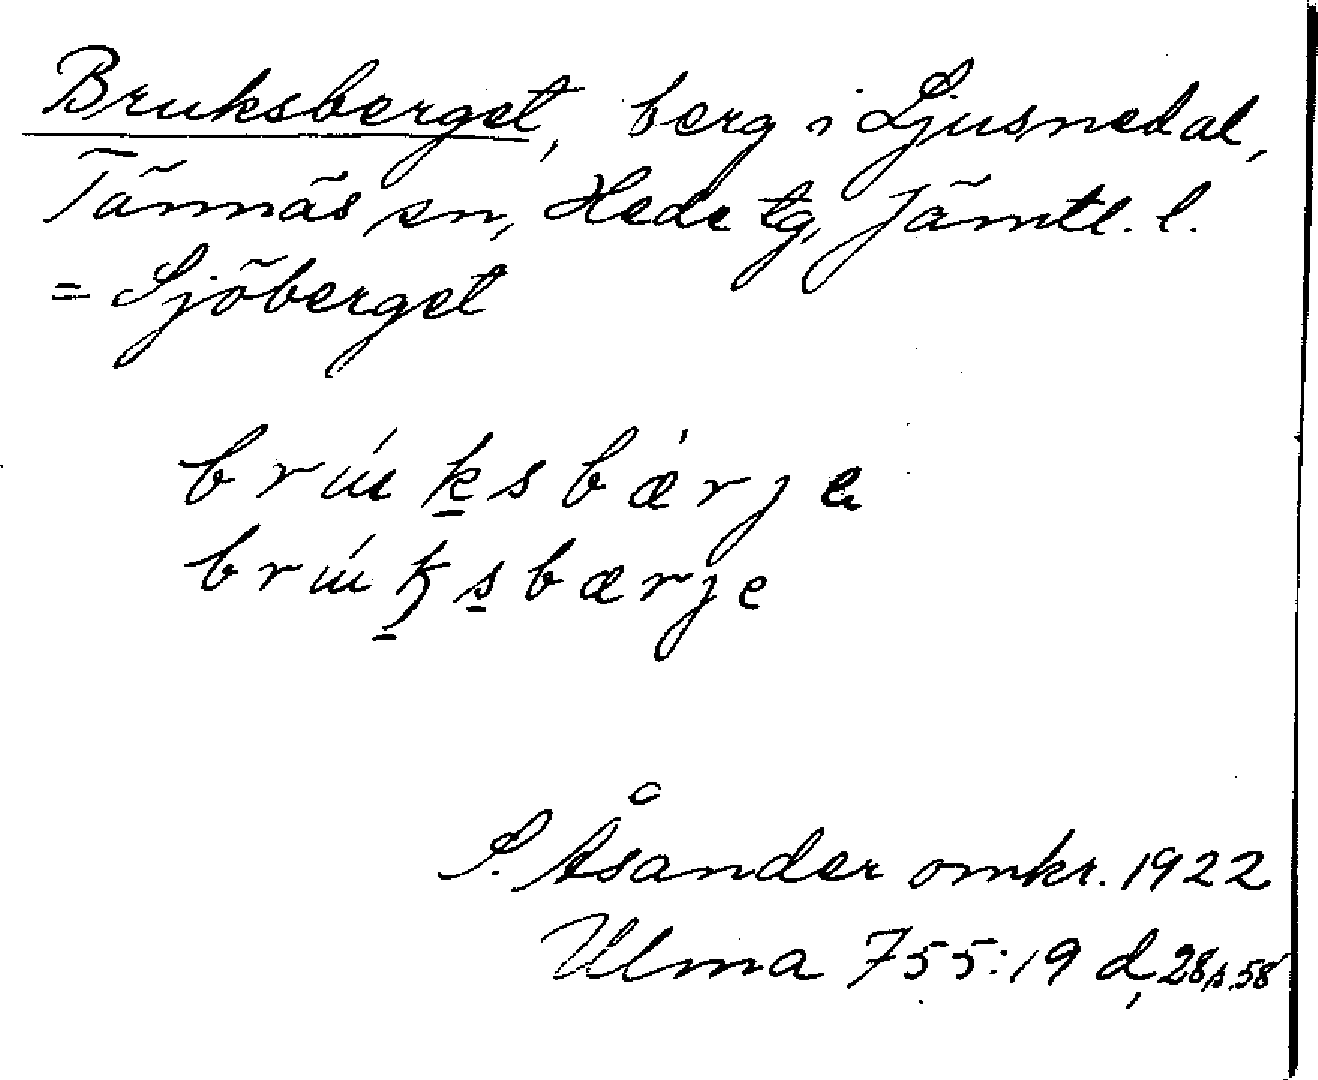 Bruksberget, berg i Ljusnedal,
Tännäs sn, Hede tg, Jämtl. l.
= Sjöberget
brúu̱ksbærje
S. Åsander omkr. 1922
Ulma 755:19 d, 28 s. 58